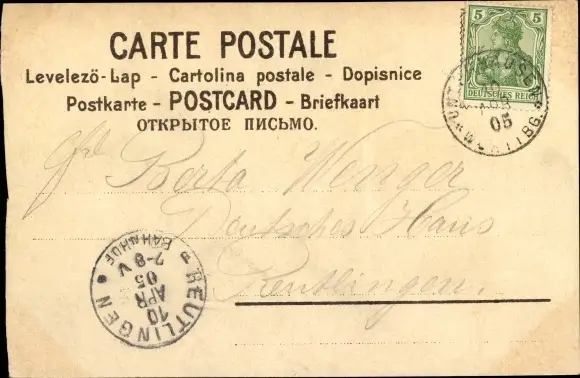 CARTE POSTALE
Levelező-Lap - Cartolina postale - Dopisnice
Postkarte - POSTCARD - Briefkaart
ОТКРЫТОЕ ПИСЬМО.
5 5
DEUTSCHES REICH
HAUSEN
10 APR
05
WÜRTTBG.
Berta Wenger
Deutsches Haus
Reutlingen.
REUTLINGEN
BAHNHOF
10
APR
05
7-8 V